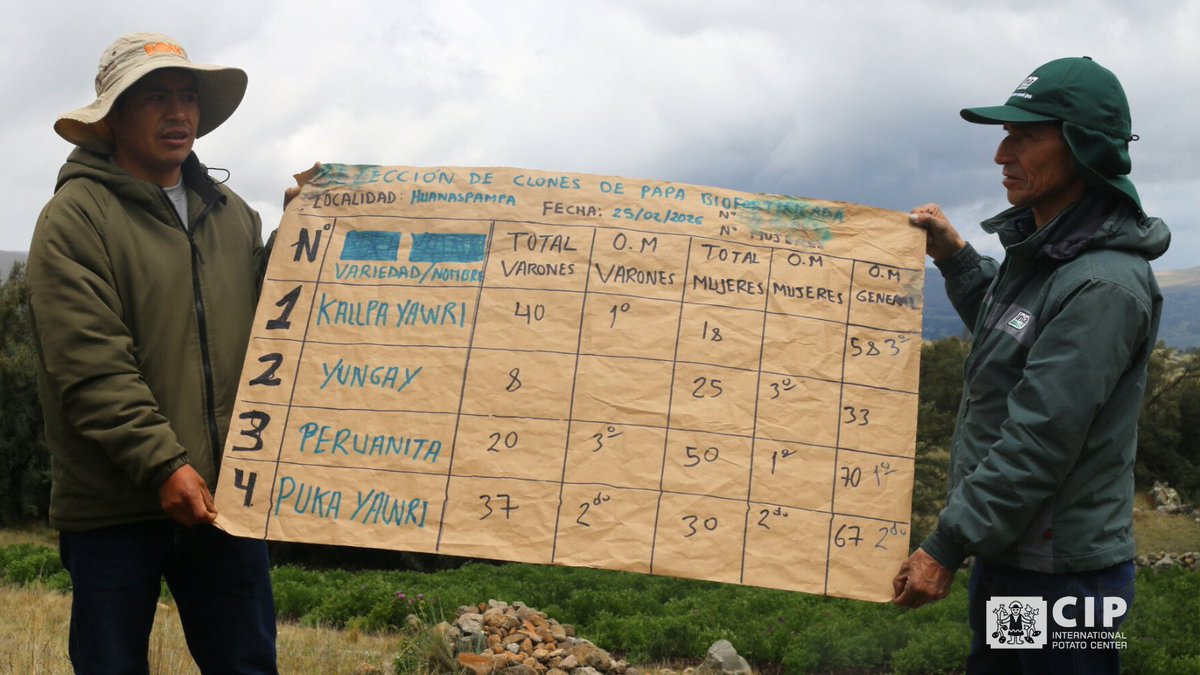 ECCIÓN DE CLONES DE PAPA BIOFORTIFICADA
LOCALIDAD: HUANASPAMPA FECHA: 25/02/2026 N°
N° MUJERES
N° VARIEDAD/NOMBRE TOTAL VARONES O.M VARONES TOTAL MUJERES O.M MUJERES O.M GENERAL
1 KALLPA YAWRI 40 1º 18 58 3º
2 YUNGAY 8 25 3º 33
3 PERUANITA 20 3º 50 1º 70 1º
4 PUKA YAWRI 37 2do 30 2do 67 2do
CIP
INTERNATIONAL
POTATO CENTER